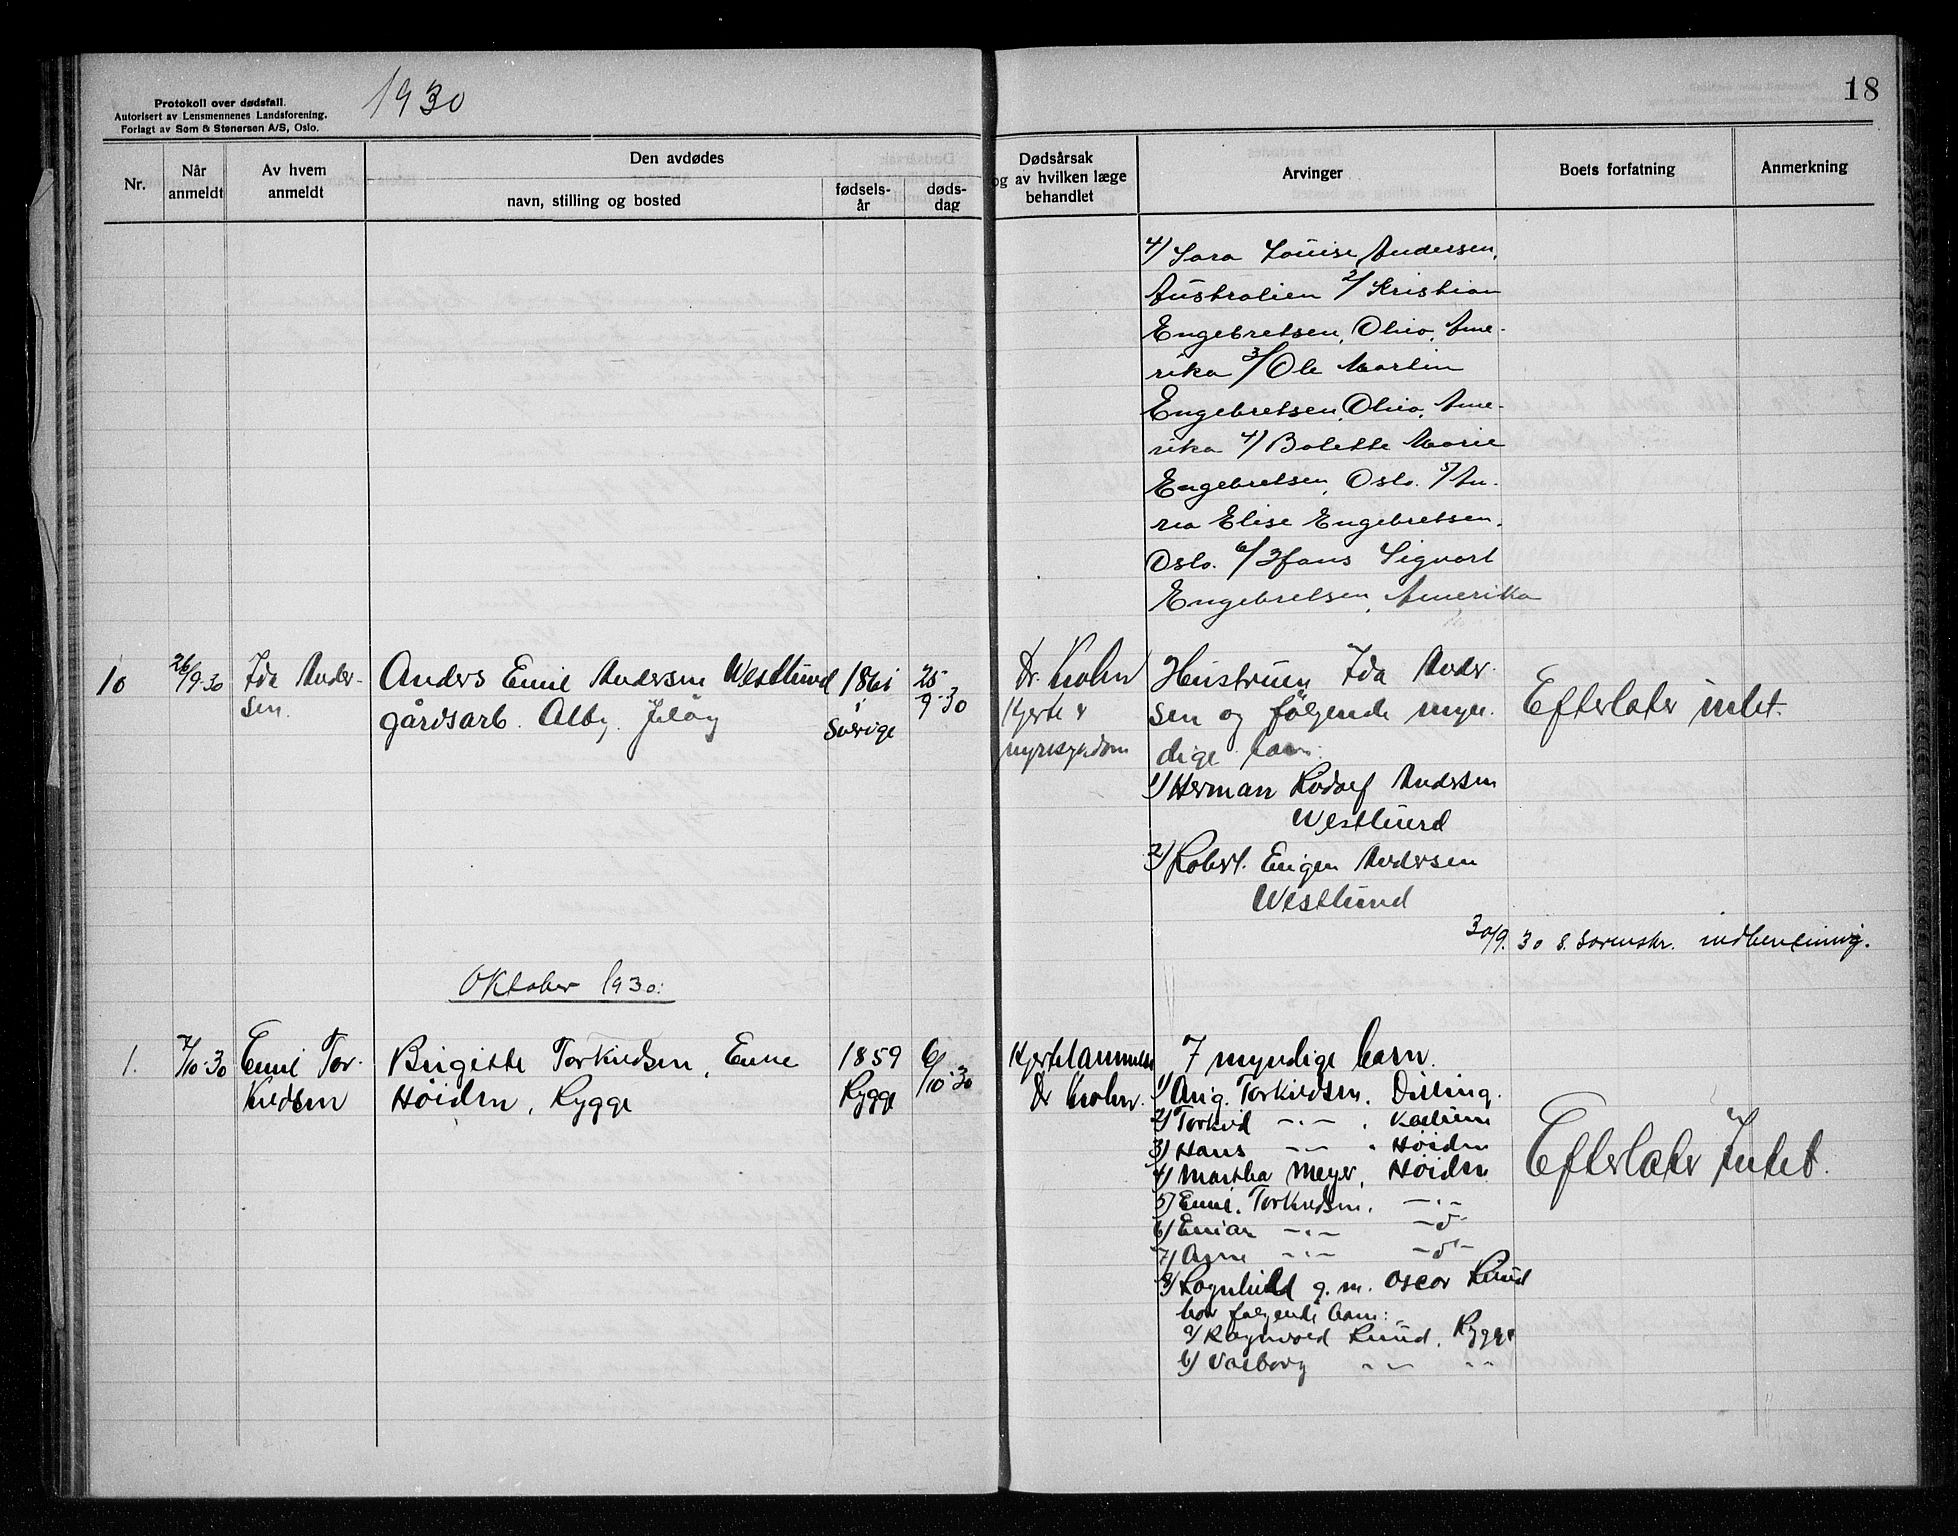 Protokoll over dødsfall.
Autorisert av Lensmennenes Landsforening.
Forlagt av Søm & Stenersen A/S, Oslo.
1930
18
Nr.
Når anmeldt
Av hvem anmeldt
Den avdødes
navn, stilling og bosted
fødsels-år
døds-dag
Dødsårsak og av hvilken læge behandlet
Arvinger
Boets forfatning
Anmerkning
Sara Louise Andersen,
Australien 2/ Kristian
Engebretsen, Ohio, Ame-
rika 3/ Ole Martin
Engebretsen, Ohio, Ame-
rika 4/ Bolette Marie
Engebretsen, Oslo. 5/
Elise Engebretsen,
Oslo. 6/ Hans Sigvart
Engebretsen, Amerika
10
26/9-30
Ida Ander-
sen.
Anders Emil Andersen Westlund
gårdsarb. Alby, Jeløy
1861
i
Sverige
25
9-30
Dr. Krohn
Hjerte &
nyresykdom
Hustruen Ida Ander-
sen og følgende myn-
dige barn:
1/ Herman Rudolf Andersen
Westlund
2/ Robert Eugen Andersen
Westlund
Efterlater intet.
30/9.30 s. Sorenskr. indberetning.
Oktober 1930:
1.
7/10-30
Emil Tor-
kildsen
Birgitte Torkildsen, Enke
Høiden, Rygge
1859
Rygge
6/10-30
Hjertelammelse
Dr Krohn.
7 myndige barn.
1/ Aug. Torkildsen, Dilling.
2/ Torkild -"-
3/ Hans -"- " Høiden
4/ Martha Meyer, Høiden
5/ Emil Torkildsen, -"-
6/ Einar -"- -"-
7/ Arne -"- -"-
8/ Ragnhild g. m. Oscar Ruud
har følgende barn:
a/ Ragnvald Ruud, Rygge
b/ Valborg -"- -"-
Efterlater Intet.